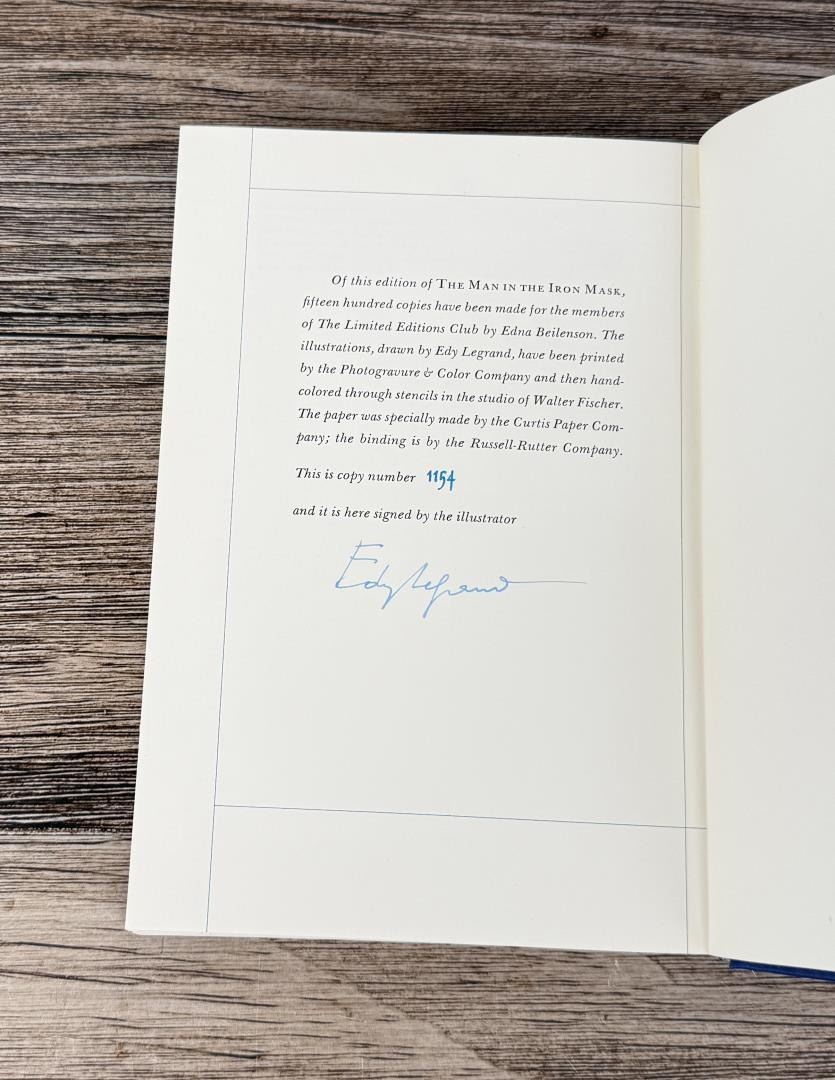 Of this edition of The Man in the Iron Mask,
fifteen hundred copies have been made for the members
of The Limited Editions Club by Edna Beilenson. The
illustrations, drawn by Edy Legrand, have been printed
by the Photogravure & Color Company and then hand-
colored through stencils in the studio of Walter Fischer.
The paper was specially made by the Curtis Paper Com-
pany; the binding is by the Russell-Rutter Company.
This is copy number 1154
and it is here signed by the illustrator
Edy Legrand